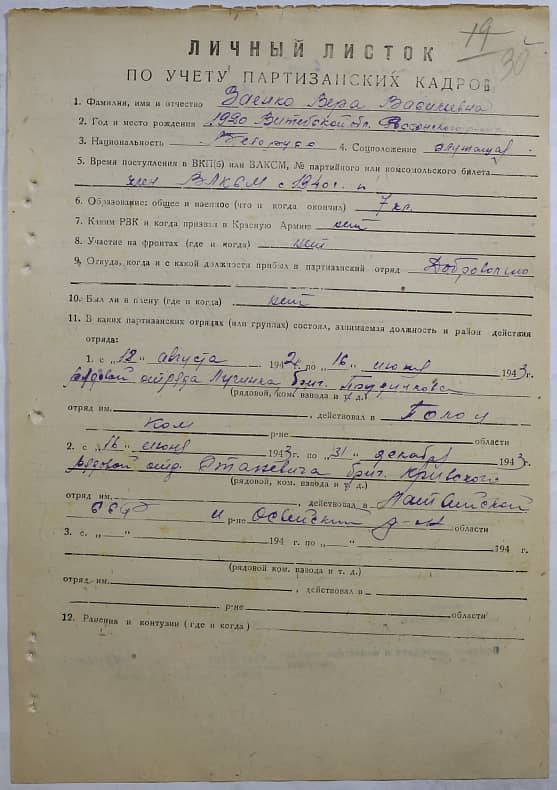 19
30
ЛИЧНЫЙ ЛИСТОК
ПО УЧЕТУ ПАРТИЗАНСКИХ КАДРОВ
1. Фамилия, имя и отчество Заенко Вера Васильевна
2. Год и место рождения 1920 Витебской обл.
3. Национальность 4. Соцположение служащая
5. Время поступления в ВКП(б) или ВЛКСМ, № партийного или комсомольского билета
член ВЛКСМ с 1940 г.
6. Образование: общее и военное (что и когда окончил) 7 кл.
7. Каким РВК и когда призван в Красную Армию нет
8. Участие на фронтах (где и когда) нет
9. Откуда, когда и с какой должности прибыл в партизанский отряд Добровольно
10. Был ли в плену (где и когда) нет
11. В каких партизанских отрядах (или группах) состоял, занимаемая должность и район действия
отряда:
1. с „12„ августа 1942 г. по „16„ июня 1943 г.
Рядовой отряда бриг.
(рядовой, ком. взвода и т. д.)
отряд им. , действовал в
р-не области
2. с „16„ июня 1943 г. по „31„ декабря 1943 г.
Рядовой отд. бриг.
(рядовой, ком. взвода и т. д.)
отряд им. , действовал в
и р-не Освейском области
3. с. „ „ 194 г. по „ „ 194 г.
(рядовой ком. взвода и т. д.)
отряд им. , действовал в
р-не области
12. Ранения и контузии (где и когда)